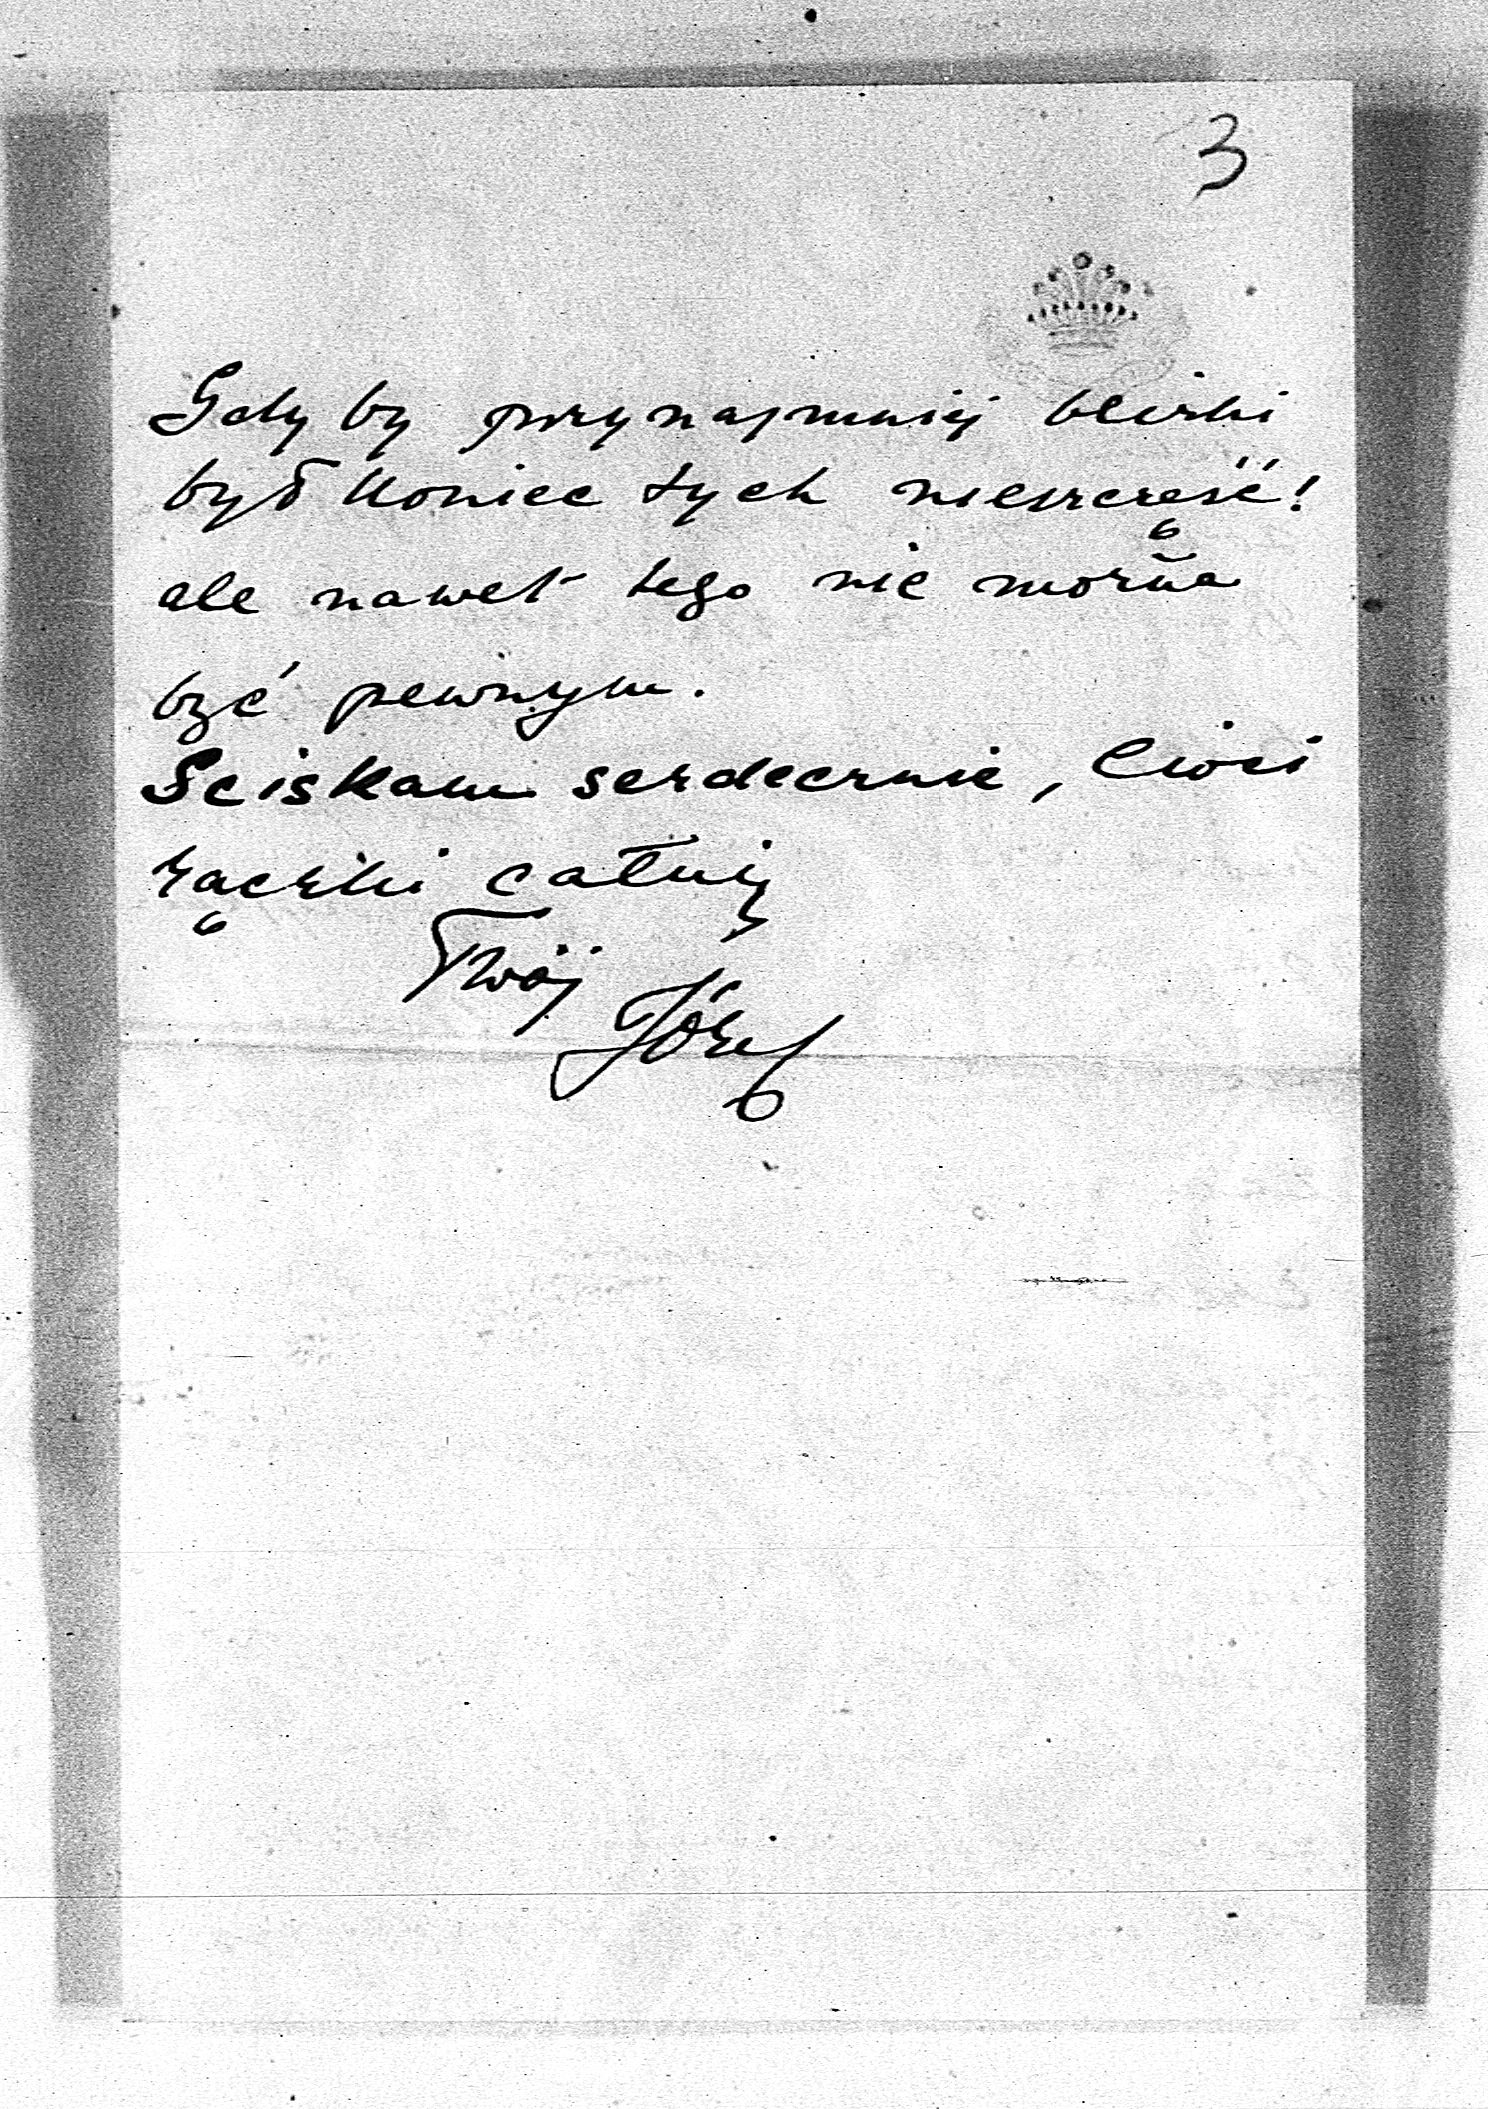 3
Gdyby przynajmniej blizki
był koniec tych nieszczęść!
ale nawet tego nie można
być pewnym.
Sciskam serdecznie, Cioci
rączki całuję
Twój
Józef